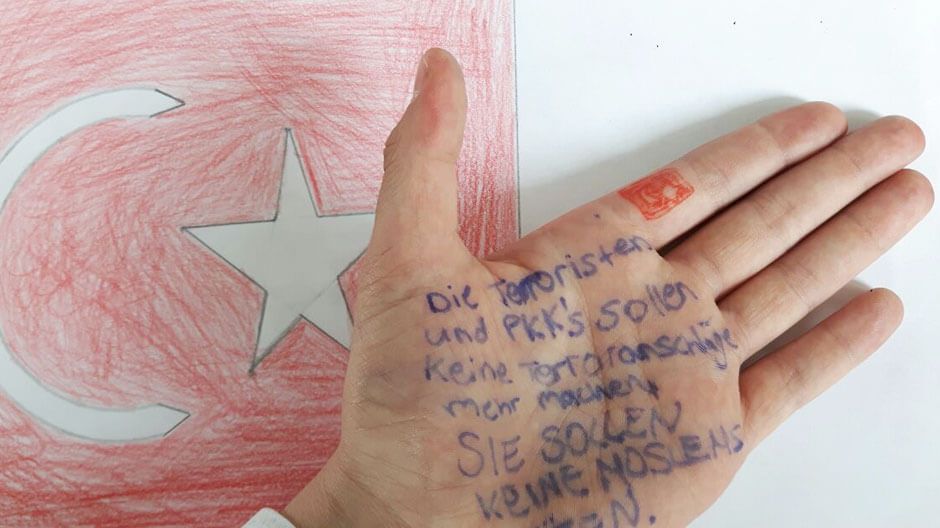 Die Terroristen
und PKK's sollen
keine Terroranschläge
mehr machen,
SIE SOLLEN
KEINE MOSLEMS